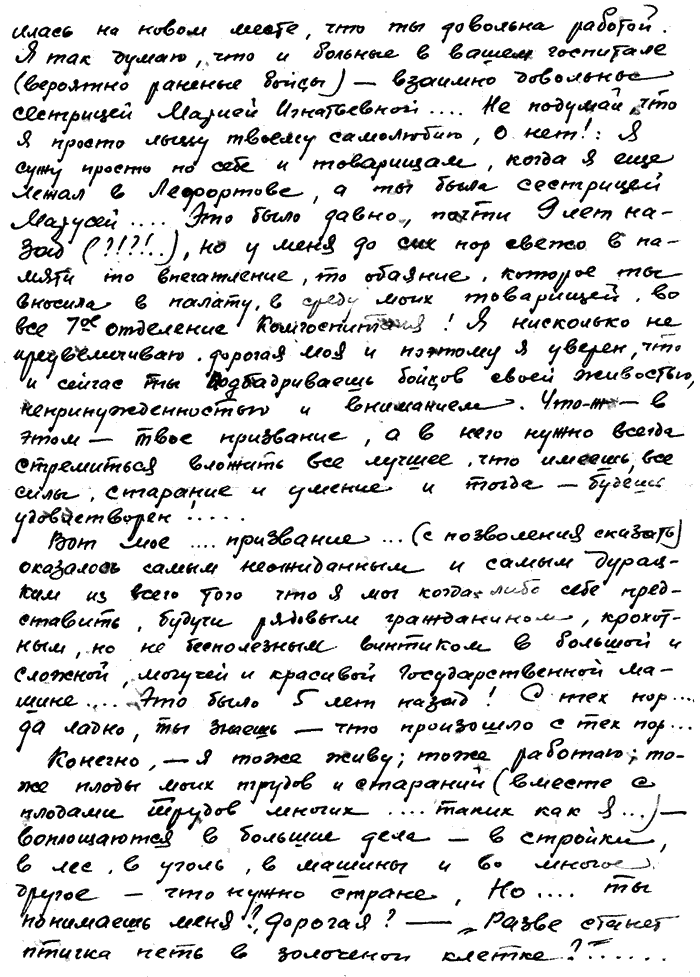 илась на новом месте, что ты довольна работой.
Я так думаю, что и больные в вашем госпитале
(вероятно раненые бойцы) — взаимно довольные
сестрицей Марией Игнатьевной.... Не подумай, что
я просто льщу твоему самолюбию, о нет!: Я
сужу просто по себе и товарищам, когда я еще
лежал в Лефортове, а ты была сестрицей
Марусей .... Это было давно, почти 9 лет на-
зад (?!?!..), но у меня до сих пор свежо в па-
мяти то впечатление, то обаяние, которое ты
вносила в палату, в среду моих товарищей, во
все 7ое отделение Комгоспиталя! Я нисколько не
преувеличиваю, дорогая моя и поэтому я уверен, что
и сейчас ты подбадриваешь бойцов своей живостью,
непринужденностью и вниманием. Что-ж — в
этом — твое призвание, а в него нужно всегда
стремиться вложить все лучшее, что имеешь, все
силы, старание и умение и тогда — будешь
удовлетворен!.....
Вот мое .... призвание ... (с позволения сказать)
оказалось самым неожиданным и самым дурац-
ким из всего того что я мог когда-либо себе пред-
ставить, будучи рядовым гражданином, крохот-
ным, но не бесполезным винтиком в большой и
сложной, могучей и красивой Государственной ма-
шине.... Это было 5 лет назад! С тех пор....
да ладно, ты знаешь — что произошло с тех пор...
Конечно, — я тоже живу; тоже работаю; то-
же плоды моих трудов и стараний (вместе с
плодами трудов многих .... таких как я...) —
воплощаются в большие дела — в стройки,
в лес, в уголь, в машины и во многое
другое — что нужно стране, Но .... ты
понимаешь меня?, дорогая? — „Разве станет
птичка петь в золоченой клетке?"......